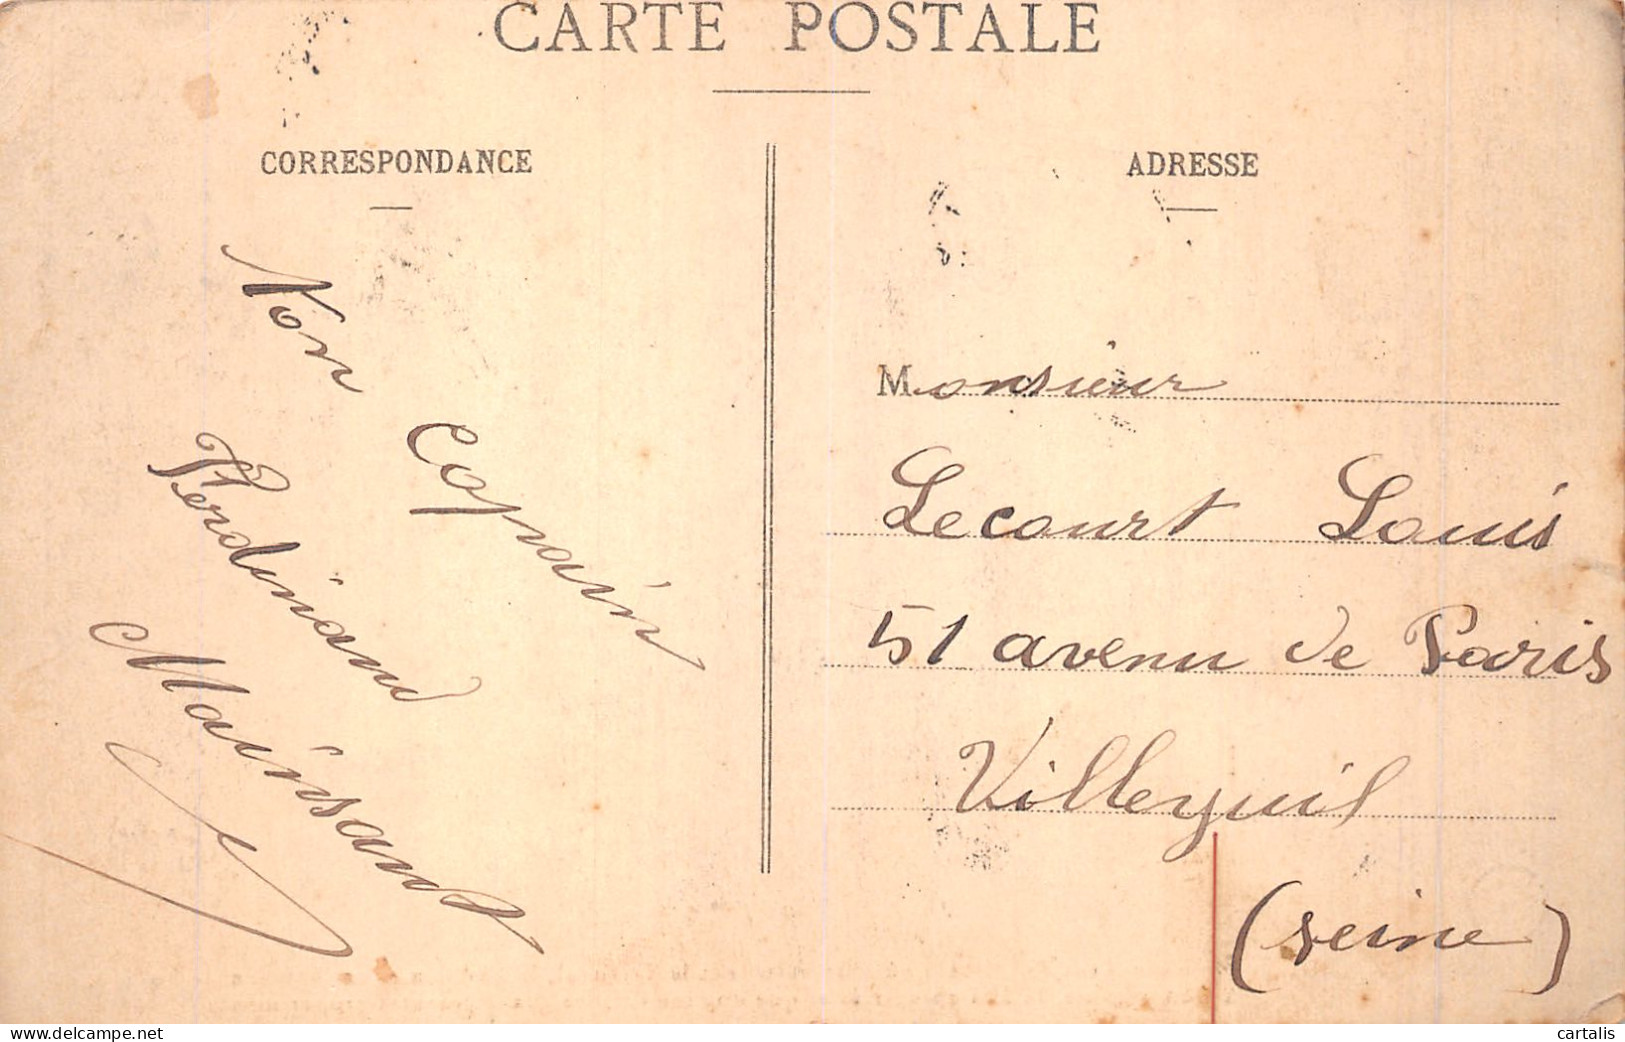 CARTE POSTALE
CORRESPONDANCE
ADRESSE
Ton copain
Ferdinand
Mainsant
Monsieur
Lecourt Louis
51 avenu de Paris
Villeyuif
(seine)
www.delcampe.net
cartalis